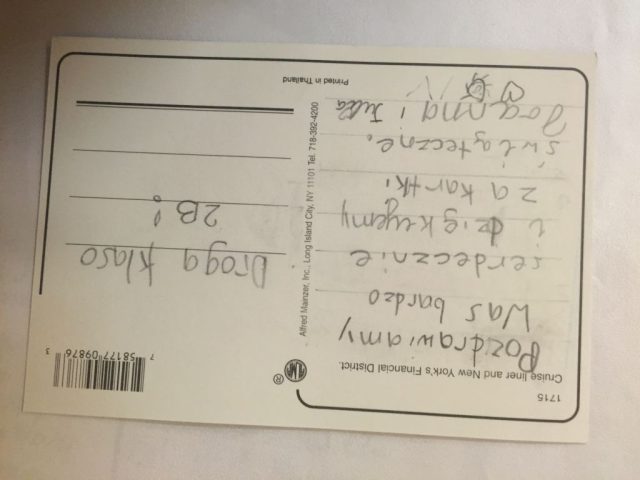 1715
Cruise liner and New York's Financial District.
Pozdrawiamy
Was bardzo
serdecznie
i dziękujemy
za kartki
świąteczne.
Joanna i Julka
Alfred Mainzer, Inc., Long Island City, NY 11101 Tel. 718-392-4200
Droga klaso
2B!
Printed in Thailand
7 58177 09876 3